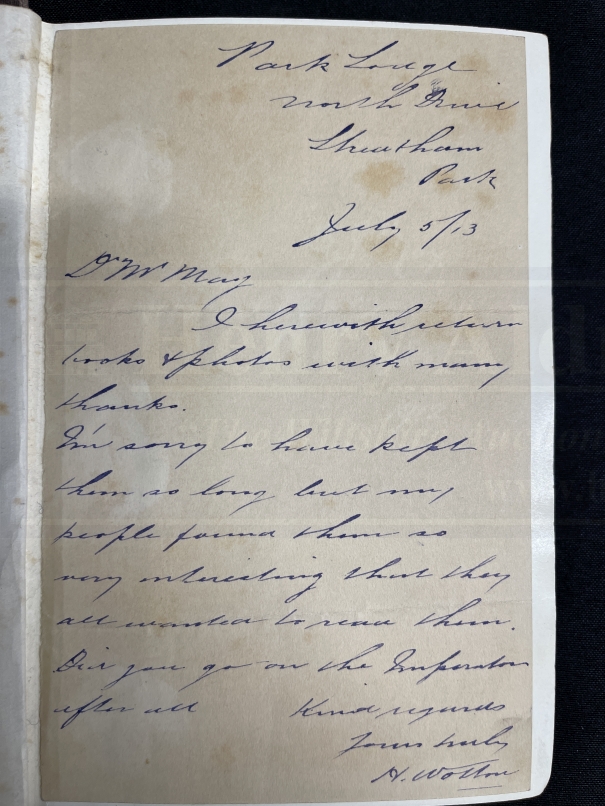 Park Lodge
North Drive
Streatham
Park
July 5/13
Dr Mr May
I herewith return
books & photos with many
thanks.
I'm sorry to have kept
them so long but my
people found them so
very interesting that they
all wanted to read them.
Did you go on the Imperator
after all Kind regards
Yours truly
H. Wotton